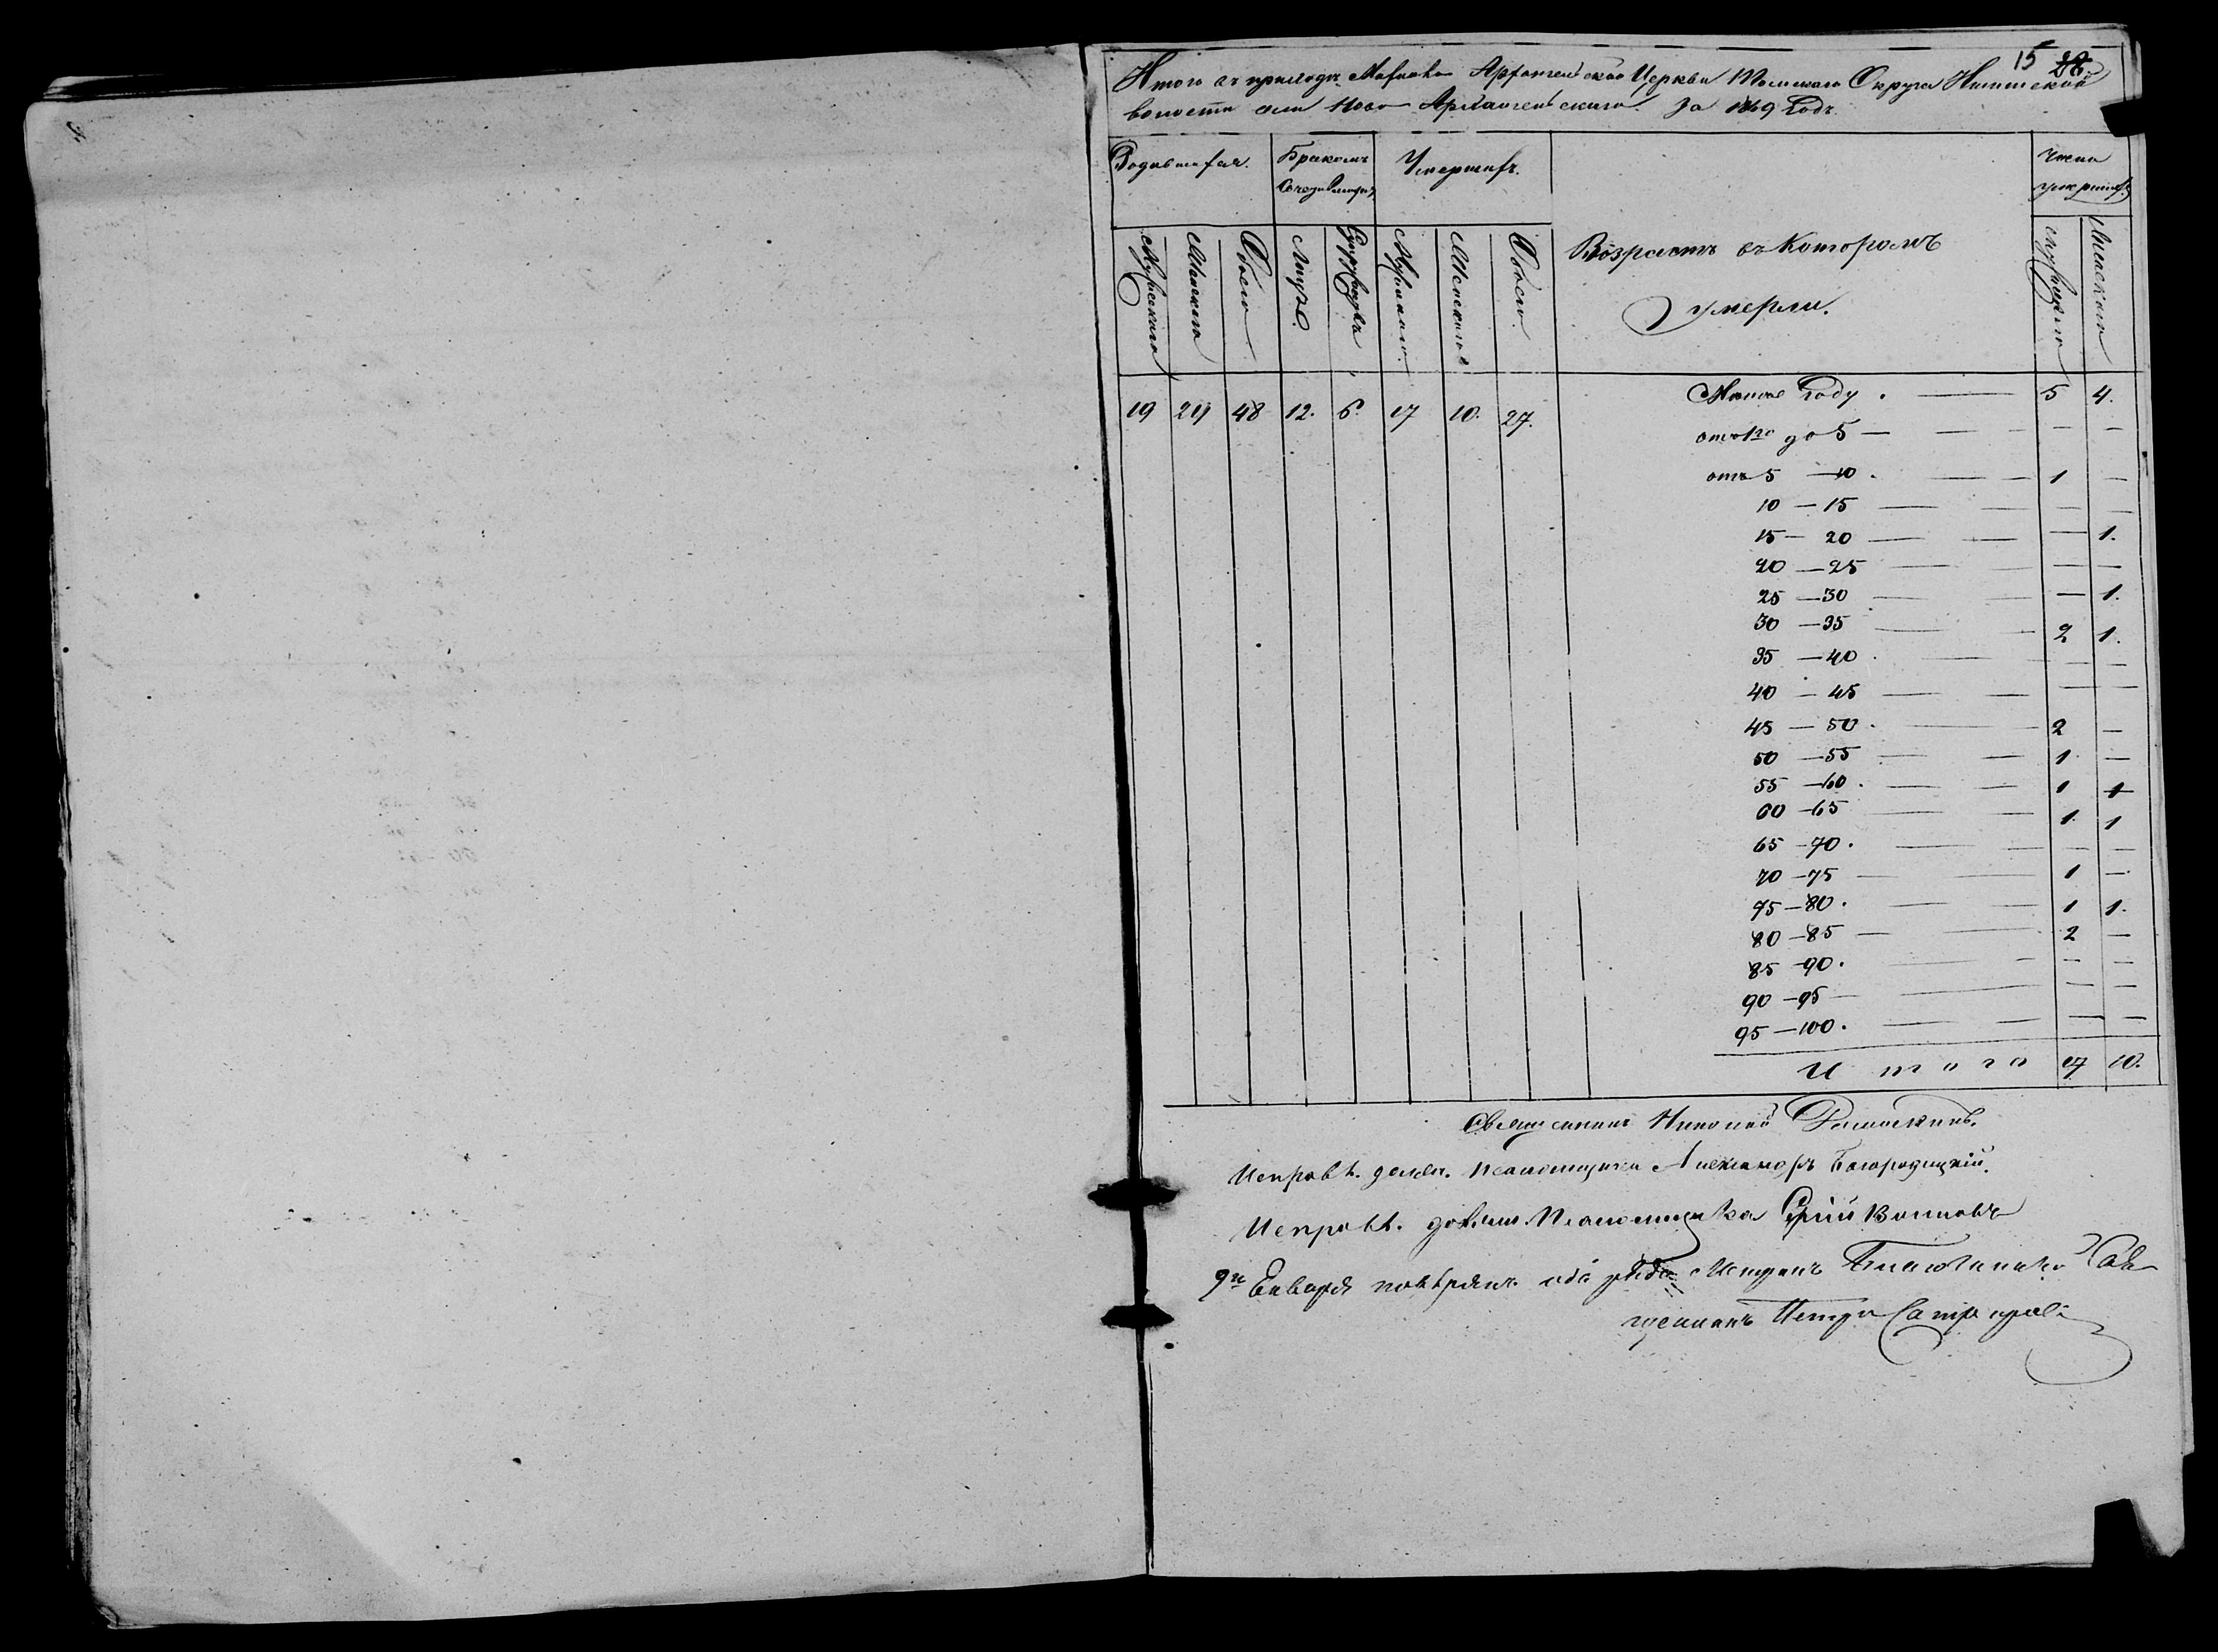 15
Итого въ приходѣ Михаило Архангельской Церкви Томскаго Округа
волости села Ново Архангельскаго за 1869 Годъ.
Родившихся. Бракомъ Умершихъ. Число
Сочетавшихся умершихъ
Возрастъ въ Которомъ
умерли.
Мужескаго Женскаго Обоего Лицъ. Супружествъ Мужескаго. Женскаго Обоего. Мужескаго Женскаго
19 29 48 12. 6. 17 10. 27. Менѣе Году . — 5 4.
отъ 1го до 5 — — — — —
отъ 5 — 10 . — — 1 —
10 — 15 — — — —
15 — 20 — — — 1.
20 — 25 — — — —
25 — 30 — — — 1.
30 — 35 — — 2 1.
35 — 40 . — — — —
40 — 45 — — — —
45 — 50 . — — 2 —
50 — 55 — — 1 —
55 — 60 . — — 1 1
60 — 65 — — 1. 1
65 — 70 . — — — —
70 — 75 — — 1 —
75 — 80 . — — 1 1.
80 — 85 — — 2 —
85 — 90 . — — — —
90 — 95 — — — —
95 — 100 . — — — —
Итого 17 10.
Священникъ Николай
Исправл. долж. Псаломщика Александръ Богородицкій.
Исправл. должн. Псаломщика
9го Января повѣрялъ Благочинный Свя-
щенникъ Петръ